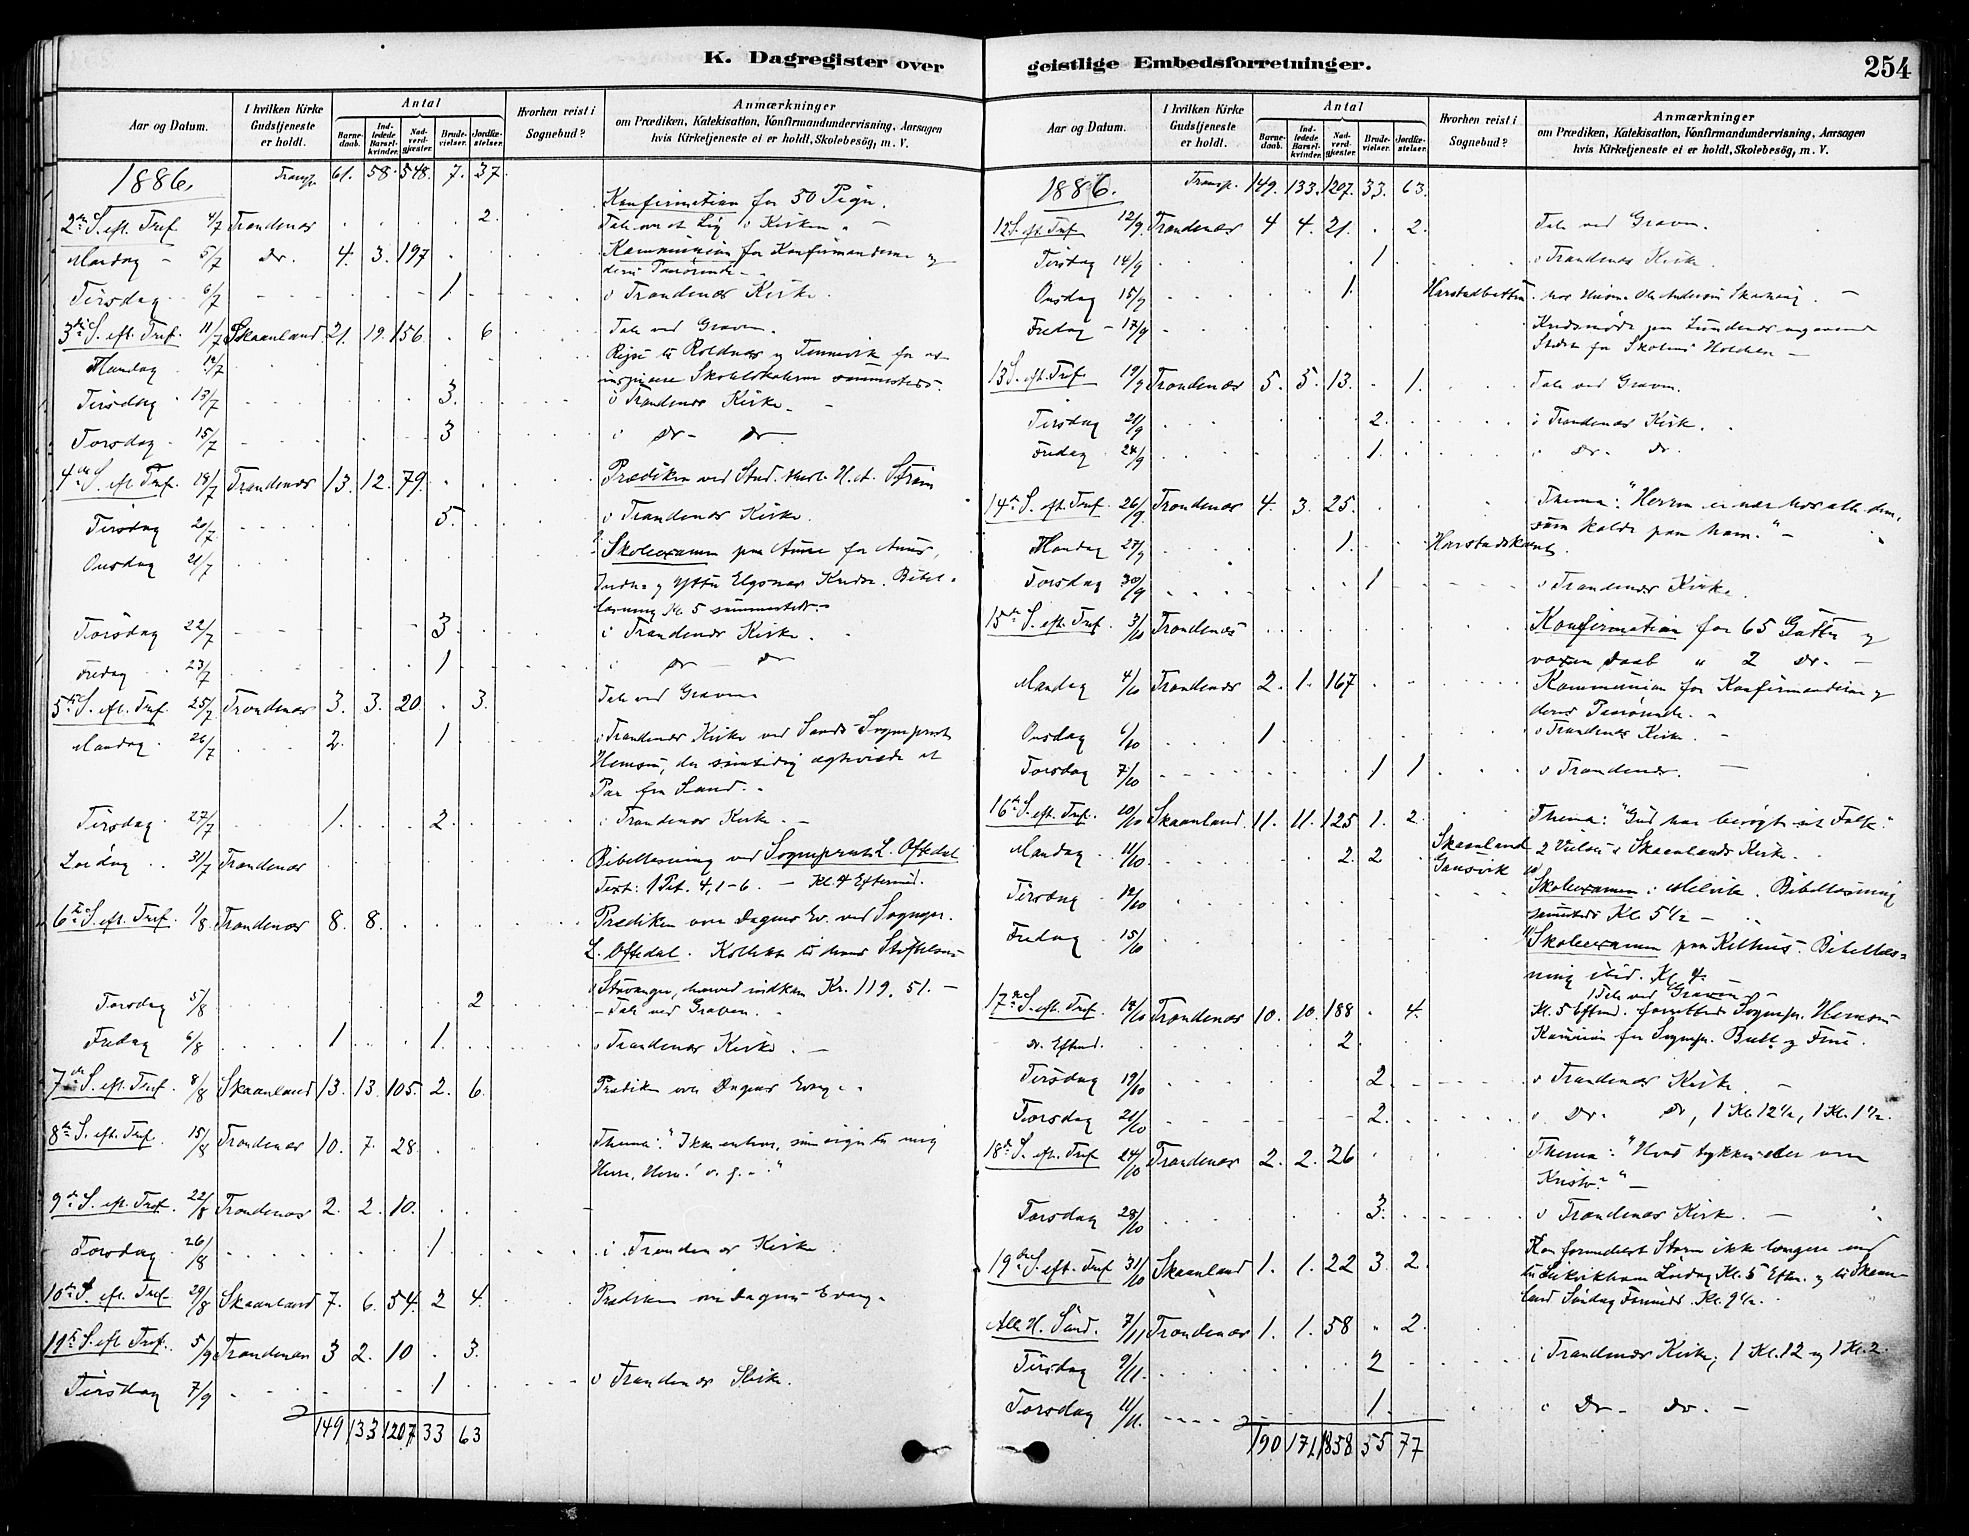 K. Dagregister over
Aar og Datum.
I hvilken Kirke Gudstjeneste er holdt.
Antal
Barne-daab.
Ind-ledede Barsel-kvinder.
Nad-verd-gjæster.
Brude-vielser.
Jordfæ-stelser.
Hvorhen reist i Sognebud?
Anmærkninger
om Prædiken, Katekisation, Konfirmandundervisning, Aarsagen
hvis Kirketjeneste ei er holdt, Skolebesøg, m. V.
1886. Transp. 61. 58. 548. 7. 37.
Konfirmation for 50 Piger.
2den S. eft. Tref. 4/7 Trondenæs 2.
Tale over et Lig i Kirken.
Mandag 5/7 do. 4. 3. 197 Kommunion for Konfirmanderne og
deres Paarørende
Tirsdag 6/7 1. i Trondenæs Kirke.
3die S. eft. Tref. 11/7 Skaanland 21. 19. 156 . 6 Tale ved Graven.
Mandag 12/7 Rejse til Roldnæs og Tennevik for at
inspicere Skolelokalerne sammesteds.
Tirsdag 13/7 3. i Trondenæs Kirke.
Torsdag 15/7 3 i do do
4de S. eft. Tref. 18/7 Trondenæs 13. 12. 79. Prædiken ved Stud. theol. H. A. Strøm
Tirsdag 20/7 5. i Trondenæs Kirke.
Onsdag 21/7 Skoleexamen paa
Indre og Ytre Elgsnæs Kredse. Bibel-
læsning Kl. 5 sammesteds.
Torsdag 22/7 3. i Trondenæs Kirke.
Fredag 23/7 1 i do do
5te S. eft. Tref. 25/7 Trondenæs 3. 3. 20. . 3. Tale ved Graven
Mandag 26/7 2. 1 i Trondenæs Kirke ved Sands Sogneprest
Hemsen, der samtidig ægteviede et
Par fra Sand.
Tirsdag 27/7 1. 2. i Trondenæs Kirke.
Lørdag 31/7 Trondenæs Bibellæsning ved Sogneprest L. Oftedal
Text: 1 Pet. 4, 1-6. — Kl. 4 Eftermid.
6te S. eft. Tref. 1/8 Trondenæs 8. 8. Prædiken over Dagens Ev. ved Sognepr.
L. Oftedal. Kollekt til hans Stiftelser i
Stavanger, hvorved indkom Kr. 119,51. —
Torsdag 5/8 2 — Tale ved Graven.
Fredag 6/8 1 1. i Trondenæs Kirke. —
7de S. eft. Tref. 8/8 Skaanland 13. 13. 105. 2. 6. Prædiken over Dagens Evang.
8de S. eft. Tref. 15/8 Trondenæs 10. 7. 28. Thema: "Ikke enhver, som siger til mig
Herre, Herre! o. s. "
9de S. eft. Tref. 22/8 Trondenæs 2. 2. 10.
Torsdag 26/8 1. i Trondenæs Kirke
10de S. eft. Tref. 29/8 Skaanland 7. 6. 54. 2 4. Prædiken over Dagens Evang.
11te S. eft. Tref. 5/9 Trondenæs 3 2. 10 . 3.
Tirsdag 7/9 1 i Trondenæs Kirke.
149 133 1207 33 63
geistlige Embedsforretninger.
254
Aar og Datum.
I hvilken Kirke Gudstjeneste er holdt.
Antal
Barne-daab.
Ind-ledede Barsel-kvinder.
Nad-verd-gjæster.
Brude-vielser.
Jordfæ-stelser.
Hvorhen reist i Sognebud?
Anmærkninger
om Prædiken, Katekisation, Konfirmandundervisning, Aarsagen
hvis Kirketjeneste ei er holdt, Skolebesøg, m. V.
1886. Transp. 149. 133. 1207. 33. 63.
12 S. eft. Tref. 12/9. Trondenæs 4 4. 21. . 2. Tale ved Graven.
Tirsdag 14/9 1 i Trondenæs Kirke.
Onsdag 15/9 1. Harstadbotten hos
Fredag 17/9 Kredsmøde paa Lundenæs angaaende
Stedet for Skolens Holdelse —
13 S. eft. Tref. 19/9 Trondenæs 5. 5. 13. . 1. Tale ved Graven.
Tirsdag 21/9 2. i Trondenæs Kirke.
Fredag 24/9 1. i do do.
14de S. eft. Tref. 26/9 Trondenæs 4. 3. 25. Thema: "Herren er nær hos alle dem,
som kalde paa ham." —
Mandag 27/9 1. Harstads
Torsdag 30/9 1 i Trondenæs Kirke.
15de S. eft. Tref. 3/10 Trondenæs Konfirmation for 65 Gutter og
voxen Daab " 2 do. —
Mandag 4/10 Trondenæs 2. 1. 167 Kommunion for Konfirmanderne og
deres Paarørende.
Onsdag 6/10 1 i Trondenæs Kirke.
Torsdag 7/10 1 1 i Trondenæs.
16de S. eft. Tref. 10/10 Skaanland 11. 11. 125 1. 2. Thema: "Gud har besøgt sit Folk."
Mandag 11/10 2. 2 Skaanland Gausvik 2 Vielser i Skaanlands Kirke.
Tirsdag 12/10 Skoleexamen i Melvik. Bibellæsning
sammesteds Kl. 5 1/2 —
Fredag 15/10 Skoleexamen paa Kilhus. Bibellæs-
ning ibid. Kl. 4.
1 Tale ved Graven —
17de S. eft. Tref. 17/10 Trondenæs 10. 10. 188 . 4. Kl. 5 Eftmd. forrettede Sognepr. Hemsen
do. Eftmd. 2. Komunion for Sognepr. Bull og Frue.
Tirsdag 19/10 2. i Trondenæs Kirke —
Torsdag 21/10 2. i do. do, 1 Kl. 12 1/2, 1 Kl. 1 1/2.
18de S. eft. Tref. 24/10 Trondenæs 2. 2. 26 Thema: "Hvad tykkes eder om
Kristo?" —
Torsdag 28/10 3. i Trondenæs Kirke. —
19de S. eft. Tref 31/10 Skaanland 1. 1. 22 3. 2. Kom formedelst Storm ikke længere end
til Lørdag Kl. 5 Eftm. og til Skaan-
land Søndag Formid. Kl. 9 1/2.
Alle H. Sønd. 7/11 Trondenæs 1. 1. 58 " 2.
Tirsdag 9/11. 2 i Trondenæs Kirke, 1 Kl. 12 og 1 Kl. 2.
Torsdag 11/11. 1. i do do. —
190 171 1858 55 77